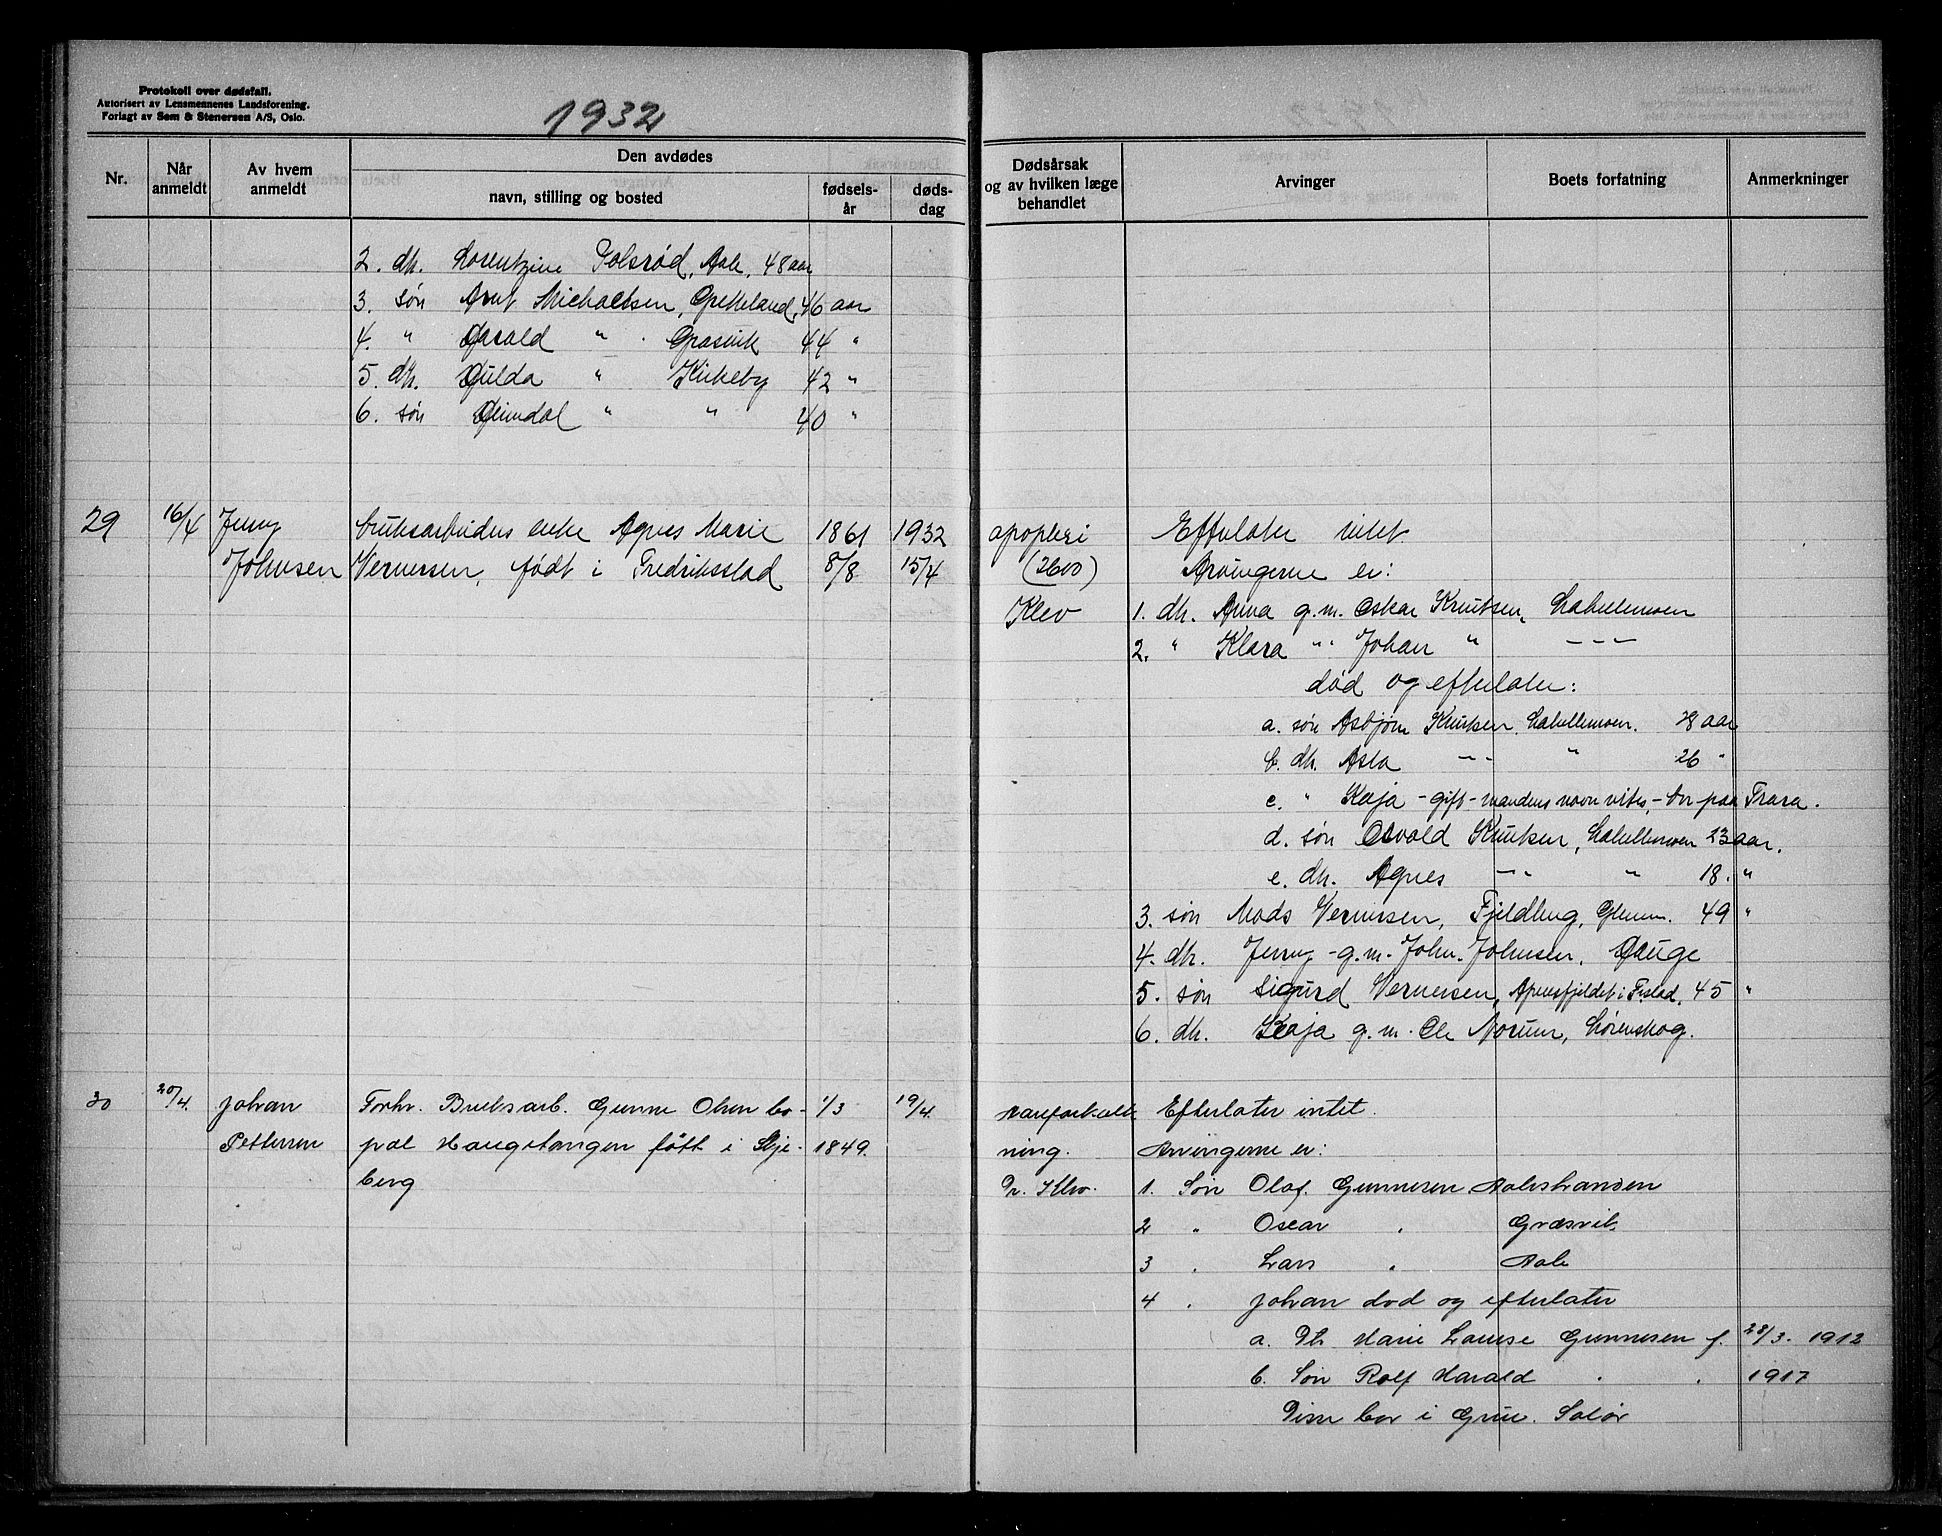 Protokoll over dødsfall.
Autorisert av Lensmennenes Landsforening.
Forlagt av Sem & Stenersen A/S, Oslo.
1932
Nr.
Når anmeldt
Av hvem anmeldt
Den avdødes
navn, stilling og bosted
fødsels-år
døds-dag
Dødsårsak og av hvilken læge behandlet
Arvinger
Boets forfatning
Anmerkninger
2. dtr. Lorentzine Solsrød, Aale, 48 aar
3. søn Arnt Michaelsen, Græteland, 46 aar
4. " Harald " Græsvik 44 "
5. dtr. Hulda " Kirkeby 42 "
6. søn Heimdal " " 40 "
29 16/4 Jenny bruksarbeiders enke Agnes Marie 1861 1932 apoplexi Efterlater intet.
Johnsen Vernersen, født i Fredriksstad 8/8 15/4 (2600) Arvingerne er:
Klev 1. dtr. Anna g.m. Oskar Knutsen, Labellemoen
2. " Klara " " Johan " - - -
død og efterlater:
a. søn Asbjørn Knutsen, Labellemoen. 28 aar
b. dtr. Asta - " - " 26 "
c. " Kaja - gift - mandens navn vites - bor paa Trara.
d. søn Osvald Knutsen, Labellemoen 23 aar.
e. dtr. Agnes - " - " 18. "
3. søn Mads Vernersen, Fjeldberg, Glemm. 49 "
4. dtr. Jenny - g.m. John. Johnsen, Hauge
5. søn Sigurd Vernersen, i Fr.stad, 45 "
6. dtr. Kaja g.m. Ole Norum, Lørenskog.
30 20/4. Johan Forhv. Bruksarb. Gunne Olsen bo- 1/3 19/4. Aareforkalk- Efterlater intet.
Pettersen pæl Haugstangen født i Skje- 1849. ning. Arvingerne er:
berg Dr. Klev. 1. Søn Olaf. Gunnesen Aalestranden
2 " Oscar " Græsvik
3 " Lars " Aale
4 " Johan død og efterlater
a. Dtr. Marie Louise Gunnesen f. 28/3. 1912
b. Søn Rolf Harald " " 1917
Disse bor i Grue. Solør